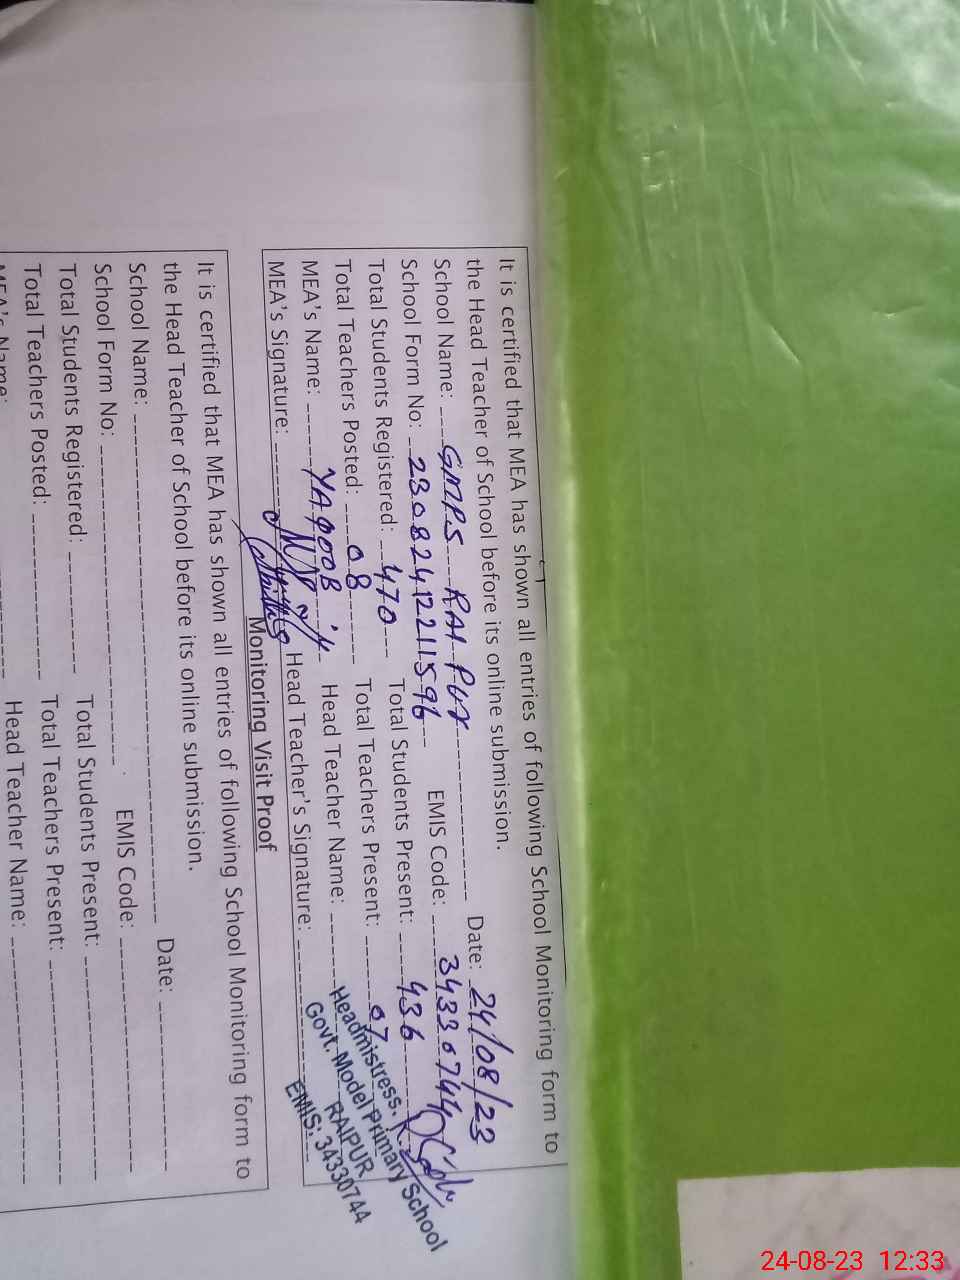 It is certified that MEA has shown all entries of following School Monitoring form to
the Head Teacher of School before its online submission.
School Name: GMPS RAI PUR Date: 24/08/23
School Form No: 23082412211596 EMIS Code: 34330744
Total Students Registered: 470 Total Students Present: 436
Total Teachers Posted: 08 Total Teachers Present: 07
MEA's Name: YAQOOB Head Teacher Name:
MEA's Signature: Head Teacher's Signature:
Headmistress.
Govt. Model Primary School
RAIPUR
EMIS: 34330744
Monitoring Visit Proof
It is certified that MEA has shown all entries of following School Monitoring form to
the Head Teacher of School before its online submission.
School Name: Date:
School Form No: EMIS Code:
Total Students Registered: Total Students Present:
Total Teachers Posted: Total Teachers Present:
MEA's Name: Head Teacher Name:
24-08-23 12:33